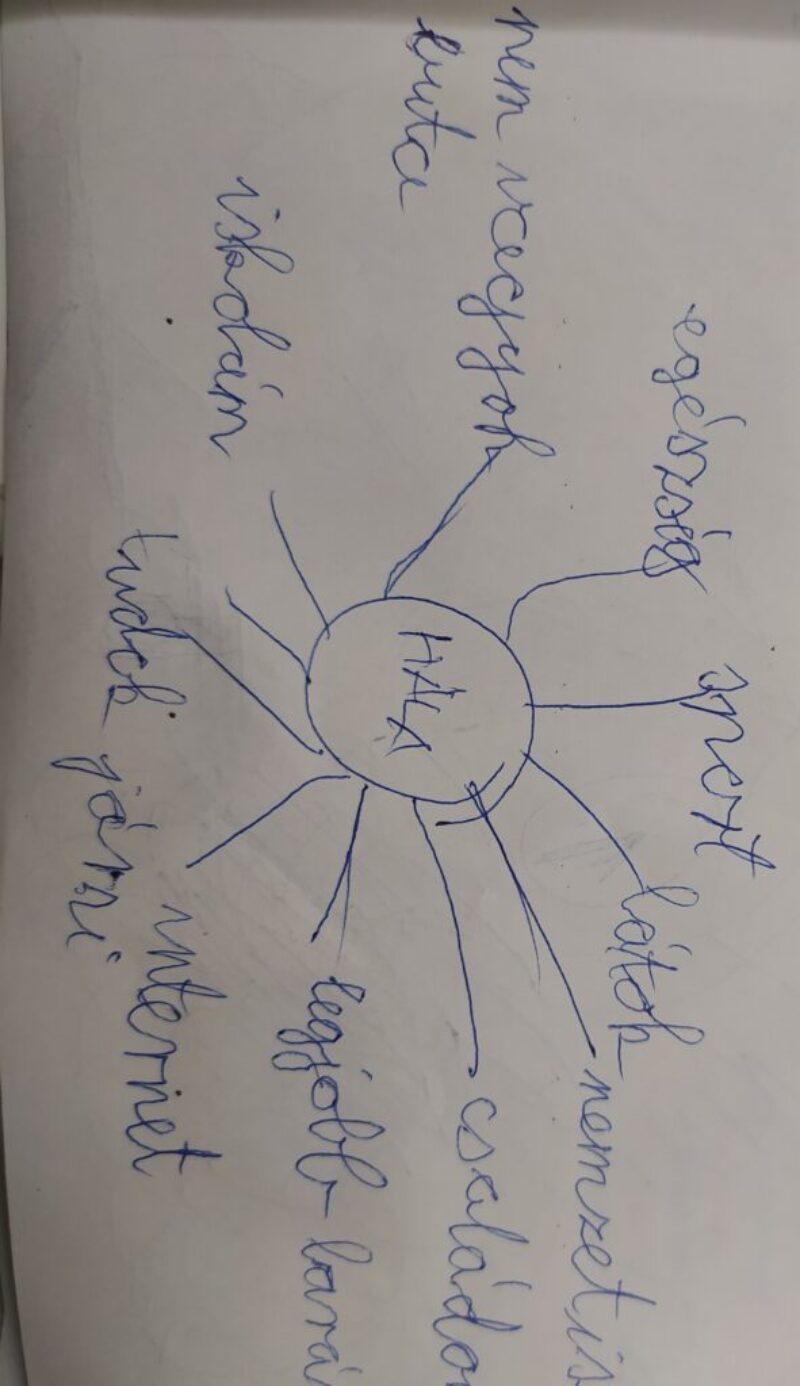 egészség
sport
látok
nemzetis
nem vagyok
buta
HÁLA
családo
iskolám
legjobb bará
tudok járni
internet